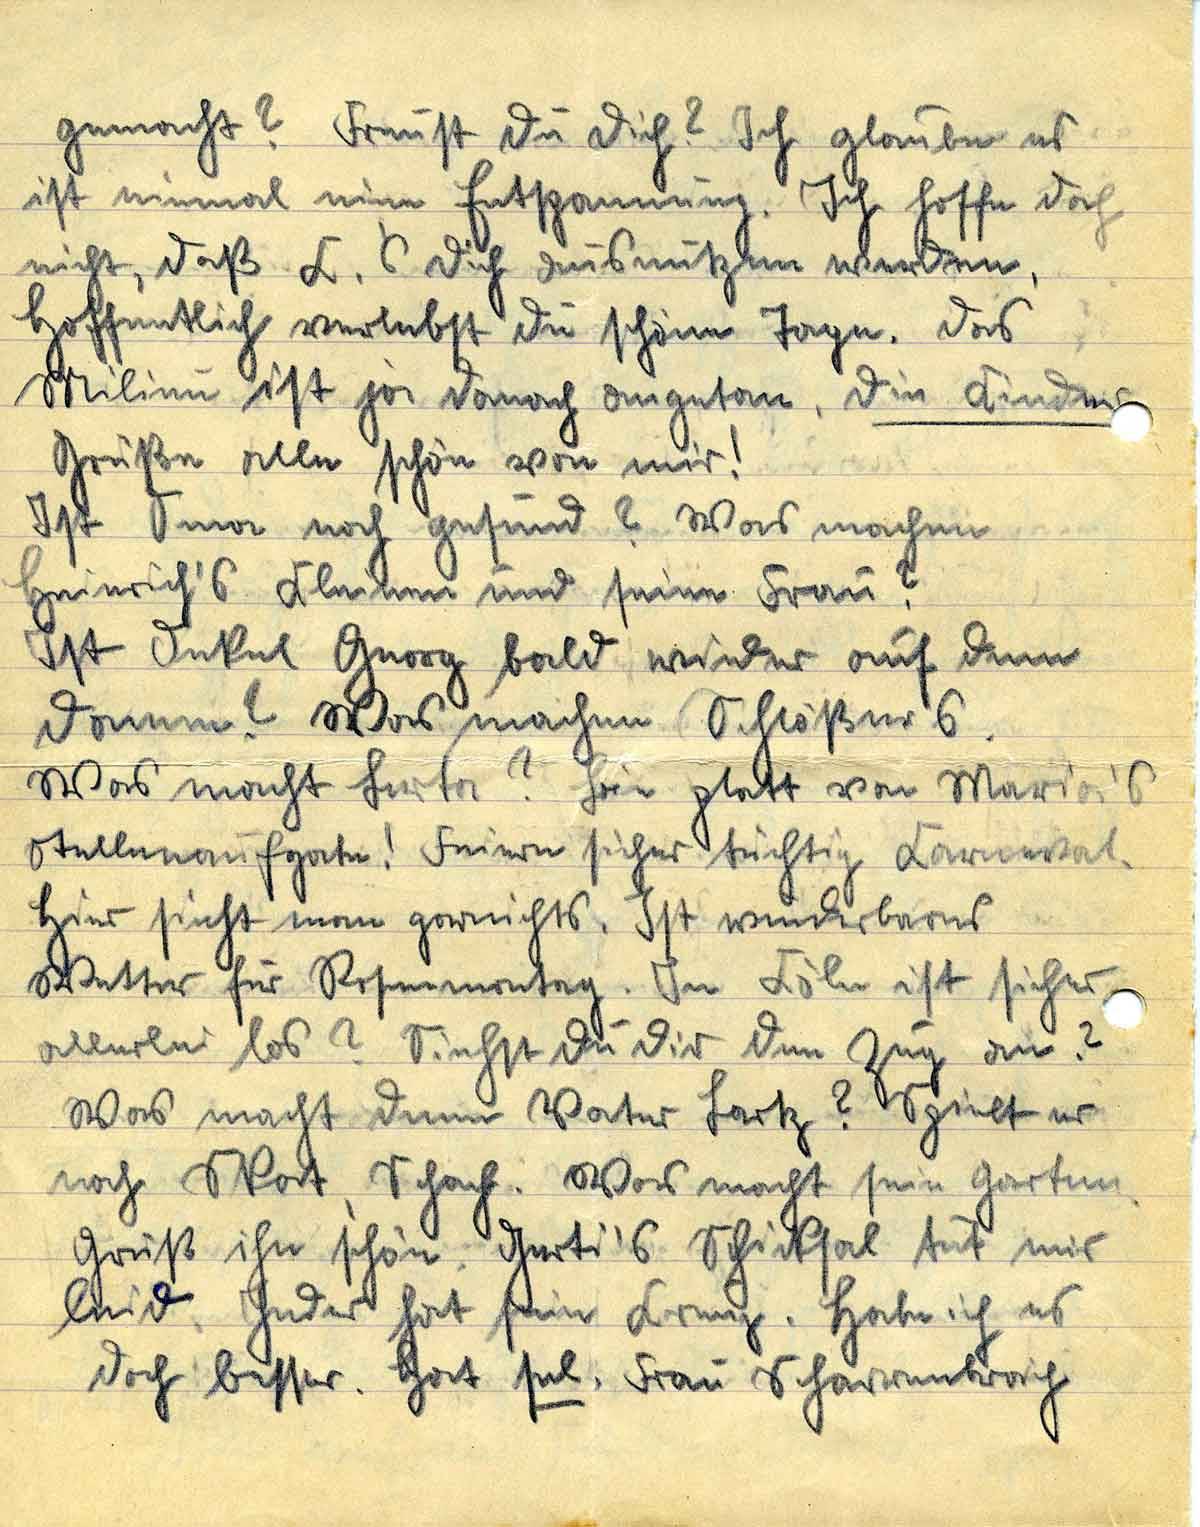 gemacht? Freust Du Dich? Ich glaube es
ist einmal eine Entspannung. Ich hoffe doch
nicht, daß K.'s Dich ausnutzen werden.
Hoffentlich verlebst Du schöne Tage. Das
Milieu ist ja danach angetan. Die Kinder
Grüße alle schön von mir!
Ist Oma noch gesund? Was machen
Heinrich's Kleinen und seine Frau?
Ist Onkel Georg bald wieder auf dem
Damm? Was machen Schlößer's.
Was macht Herta? bin platt von Maria's
Stellenaufgabe! Feiern sicher tüchtig Karneval.
Hier sieht man garnichts. Ist wunderbares
Wetter für Rosenmontag. In Köln ist sicher
allerlei los? Siehst Du Dir den Zug an?
Was macht denn Vater Hartz? Spielt er
noch Skat, Schach. Was macht sein Garten.
Grüß ihn schön. Gerti's Schicksal tut mir
leid. Jeder hat sein Kreuz. Habe ich es
doch besser. Hat sel. Frau Scharrenbroich